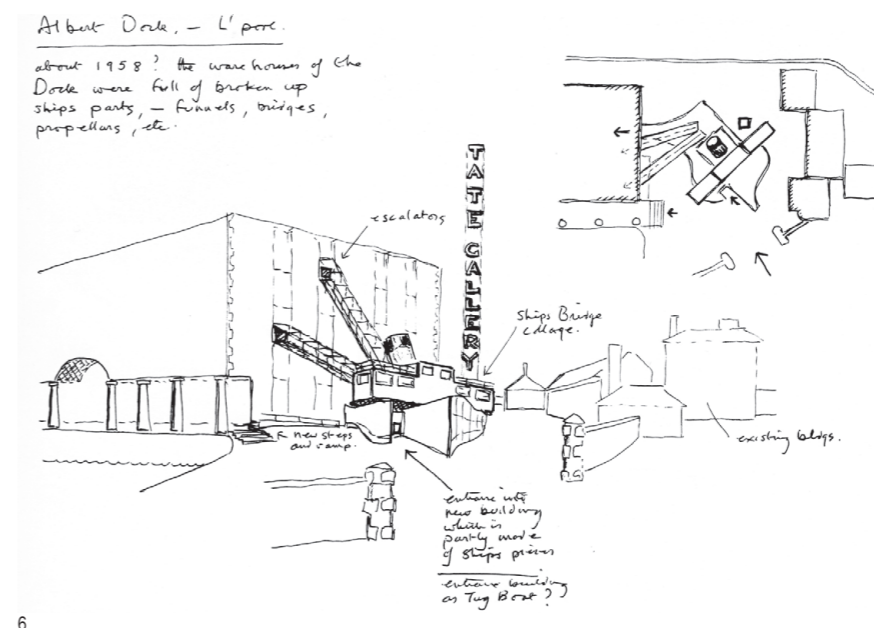 Albert Dock, – L'pool.
about 1958? the warehouses of the
Dock were full of broken up
ships parts, – funnels, bridges,
propellars, etc.
TATE GALLERY
escalators
Ships Bridge
collage.
new steps
and ramp.
existing bldgs.
entrance into
new building
which is
partly made
of ships pieces
entrance building
as Tug Boat?
6